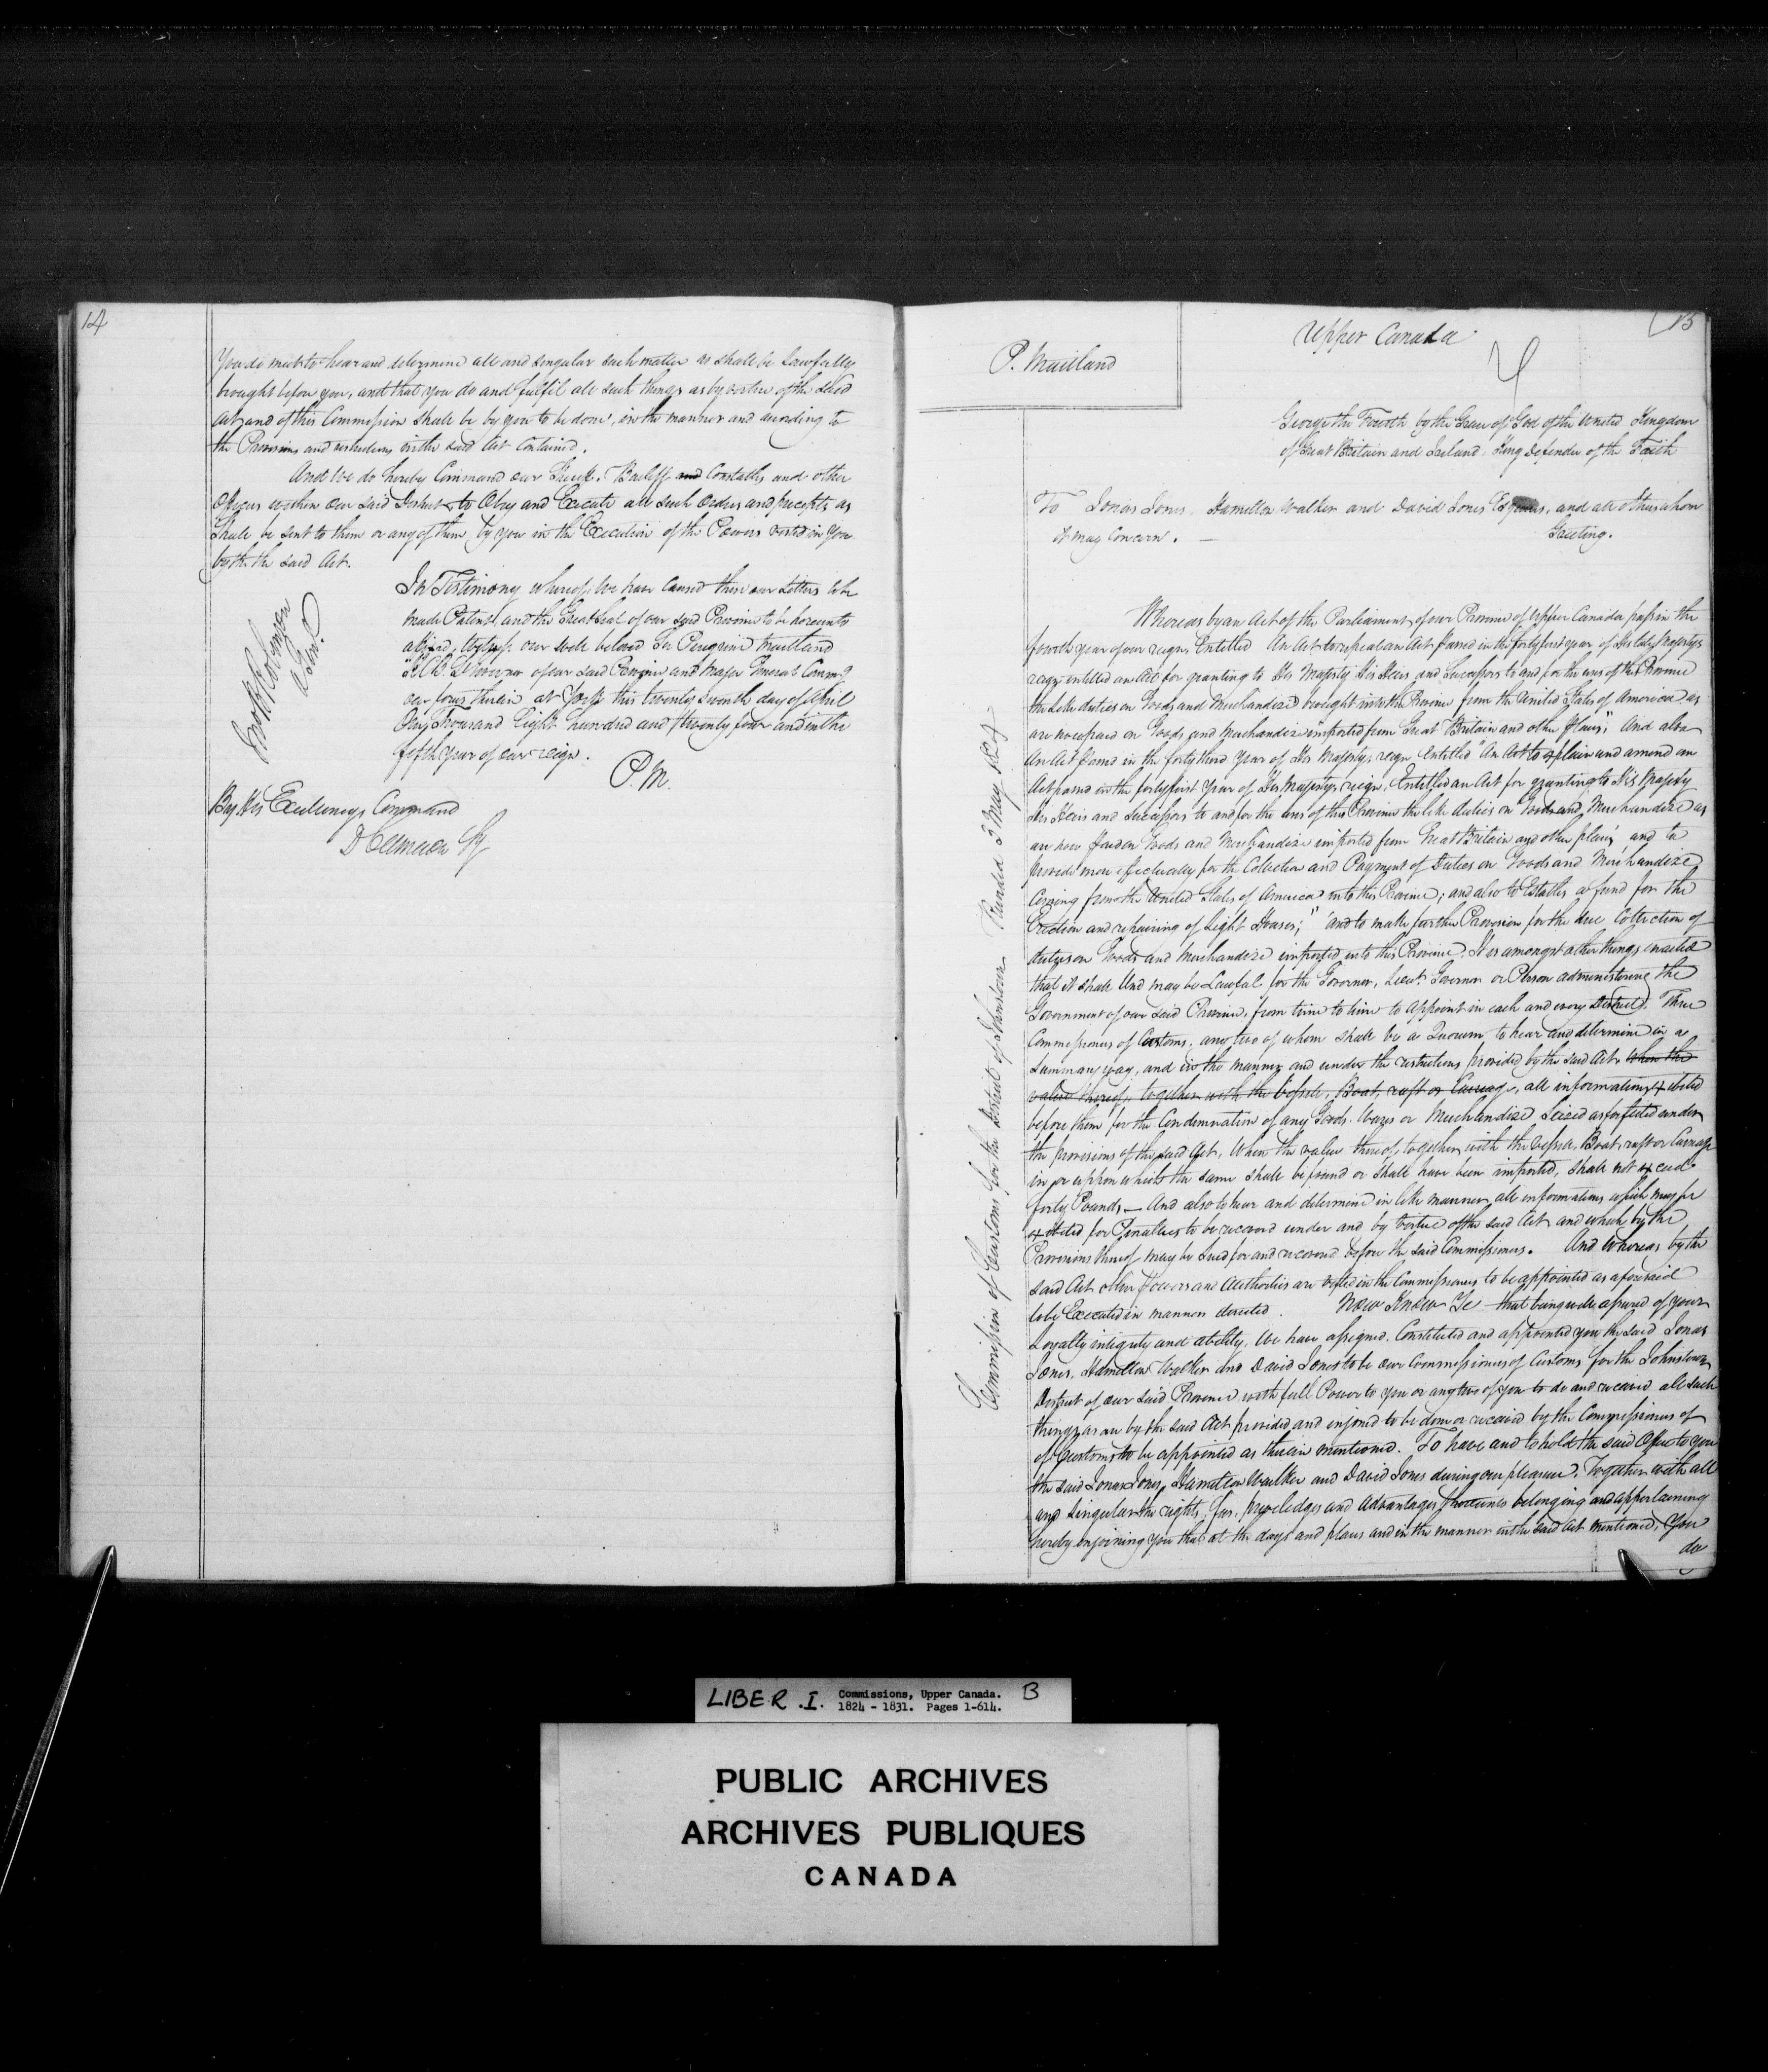 14
You do meet to hear and determine all and singular such matter as shall be Lawfully
brought before you, and that you do and fulfil all such things as by virtue of the said
Act and of this Commission shall be by you to be done, in the manner and according to
the Provisions and restrictions in the said Act Contained.
And We do hereby Command our Sheriff, Bailiff and Constables and other
Officers within our said District to Obey and Execute all such Orders and precepts as
Shall be sent to them or any of them by you in the Execution of the Powers vested in you
by the the said Act.
In Testimony whereof We have Caused these our Letters to be
made Patent, and the Great Seal of our said Province to be hereunto
affixed, Witness our well beloved Sir Peregrine Maitland
K.C.B. Lt Governor of our said Province and Major General Commg
our forces therein at York this twenty seventh day of April
One Thousand Eight hundred and twenty four and in the
fifth year of our reign.
P.M.
By His Excellencys Command
D Cameron Sy
P. Maitland
15
Upper Canada
George the Fourth by the Grace of God of the United Kingdom
of Great Britain and Ireland King Defender of the Faith
To Jonas Jones, Hamilton Walker and David Jones Esquires, and all others whom
it may Concern. — Greeting.
Commission of Customs for the District of Johnstown Recorded 3 May 1824
Whereas by an Act of the Parliament of our Province of Upper Canada passed in the
fourth year of our reign, Entitled An Act to repeal an Act passed in the forty first year of His late Majestys
reign entitled an Act for granting to His Majesty His Heirs and Successors to and for the uses of this Province
the like duties on Goods and Merchandize brought into this Province from the United States of America as
are now paid on Goods and Merchandize imported from Great Britain and other places," And also
An Act passed in the forty third year of His Majestys reign entitled "An Act to explain and amend an
Act passed in the forty first year of His Majestys reign, Entitled an Act for granting to His Majesty
His Heirs and Successors to and for the uses of this Province the like duties on Goods and Merchandize as
are now paid on Goods and Merchandize imported from Great Britain and other places, and to
provide more effectually for the Collection and Payment of Duties on Goods and Merchandize
Coming from the United States of America into this Province; and also to Establish a fund for the
Erection and repairing of Light Houses;" and to make further Provision for the due Collection of
duties on Goods and Merchandize imported into this Province. It is amongst other things enacted
that it Shall And may be Lawful for the Governor, Lieut. Governor or Person administering the
Government of our said Province, from time to time to appoint in each and every District, Three
Commissioners of Customs, any two of whom shall be a Quorum to hear and determine in a
Summary way, and in the manner and under the restrictions provided by the said Act, when the
value thereof, together with the Vessel, Boat, raft or Carriage, all informations exhibited
before them for the Condemnation of any Goods, Wares or Merchandize Seized as forfeited under
the provisions of the said Act, When the value thereof, together with the vessel, Boat, raft or Carriage
in or uppon which the same shall be found or shall have been imported, shall not exceed
forty Pounds, — And also to hear and determine in like manner all informations which may be
exhibited for Penalties to be recovered under and by Virtue of the said Act and which by the
Provisions thereof may be sued for and recovered before the said Commissioners. And Whereas by the
said Act other Powers and Authorities are vested in the Commissioners to be appointed as aforesaid
to be Executed in manner directed. Now Know Ye that being well assured of your
Loyalty integrity and ability, We have assigned, Constituted and appointed you the said Jonas
Jones, Hamilton Walker and David Jones to be our Commissioners of Customs for the Johnstown
District of our said Province with full Power to you or any two of you to do and receive all such
things as are by the said Act provided and enjoined to be done or received by the Commissioners of
of Customs to be appointed as therein mentioned. To have and to hold the said Office to you
the said Jonas Jones, Hamilton Walker and David Jones during our pleasure, Together with all
and Singular the rights, fees, priviledges and advantages thereunto belonging and appertaining
hereby enjoining you that at the days and places and in the manner in the said Act mentioned, You
do
LIBER .I. Commissions, Upper Canada. B
1824 - 1831. Pages 1-614.
PUBLIC ARCHIVES
ARCHIVES PUBLIQUES
CANADA